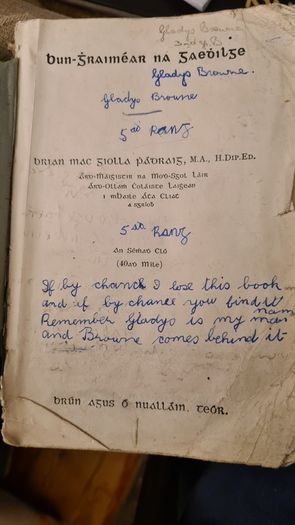 Gladys Browne
Bun-Ġraiméar na Gaeḋilge
Gladys Browne.
Gladys Browne
5aḋ Rang
Brian Mac Giolla Ṗádraig, M.A., H.Dip.Ed.
Árd-Ṁáiġistir na Mod-Sgol Láir
Árd-Ollaṁ Coláiste Laiġean
i mBaile Áṫa Cliaṫ
a sgríoḃ
5aḋ Rang
An Séṁaḋ Cló
(40aḋ Míle)
If by chance I lose this book
and if by chance you find it
Remember Gladys is my nam
and Browne comes behind it
Brún agus Ó Nualláin, Teór.